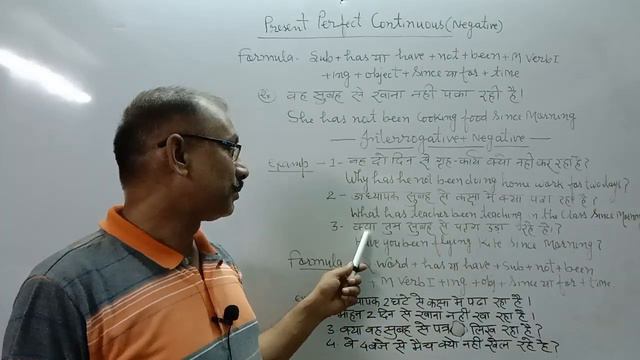 Present Perfect Continuous (Negative)
Formula - Sub + has या have + not + been + M Verb I
+ ing + object + since या for + time
Ex. वह सुबह से खाना नहीं पका रही है।
She has not been Cooking food Since Morning
Interrogative + Negative
Examp - 1 - वह दो दिन से गृह-कार्य क्यों नहीं कर रहा है?
Why has he not been doing home work for two days?
2 - अध्यापक सुबह से कक्षा में क्या पढ़ा रहा है?
What has teacher been teaching in the Class Since Morn
3 - क्या तुम सुबह से पतंग उड़ा रहे हो?
you been flying kite Since Morning?
Formula Word + has या have + Sub + not + been
+ M Verb I + ing + obj + Since या for + time
2 घंटे से कक्षा में पढ़ा रहा है।
मोहन 2 दिन से खाना नहीं खा रहा है।
3. क्या वह सुबह से पत्र लिख रहा है?
4. वे 4 बजे से मैच क्यों नहीं खेल रहे हैं?